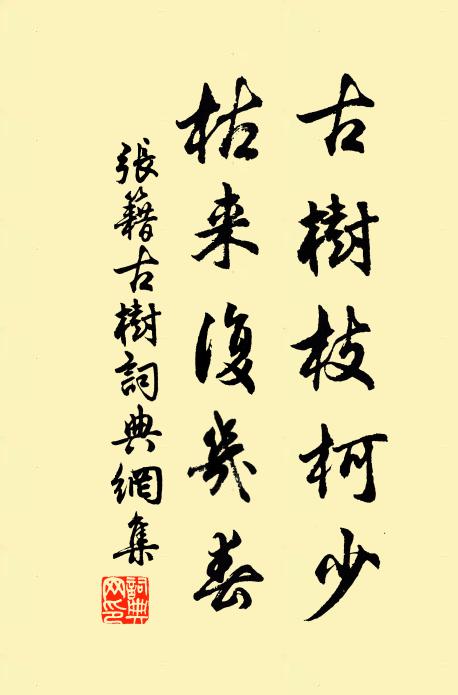 古樹枝柯少
枯来復幾春
張籍古樹詞典網集
詞典網印